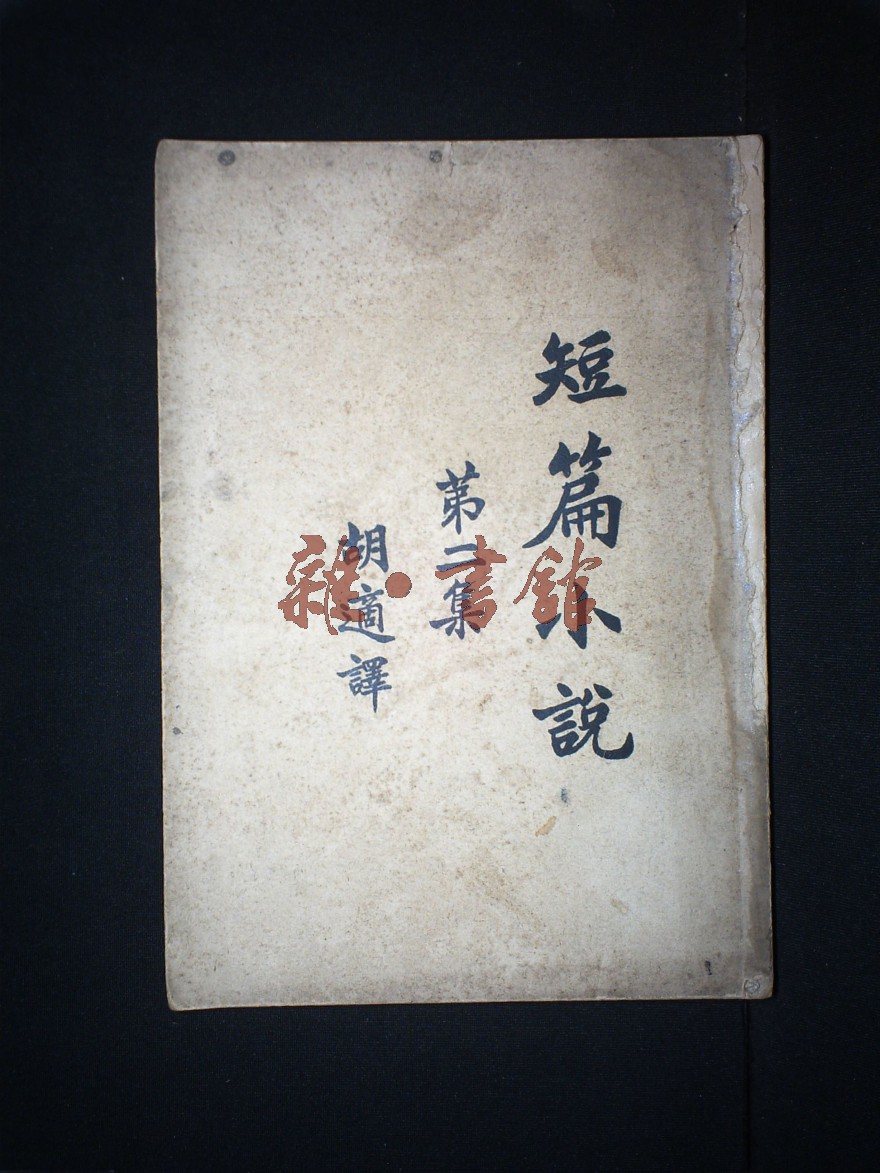 短篇小說
第二集
胡適譯
雜·書館